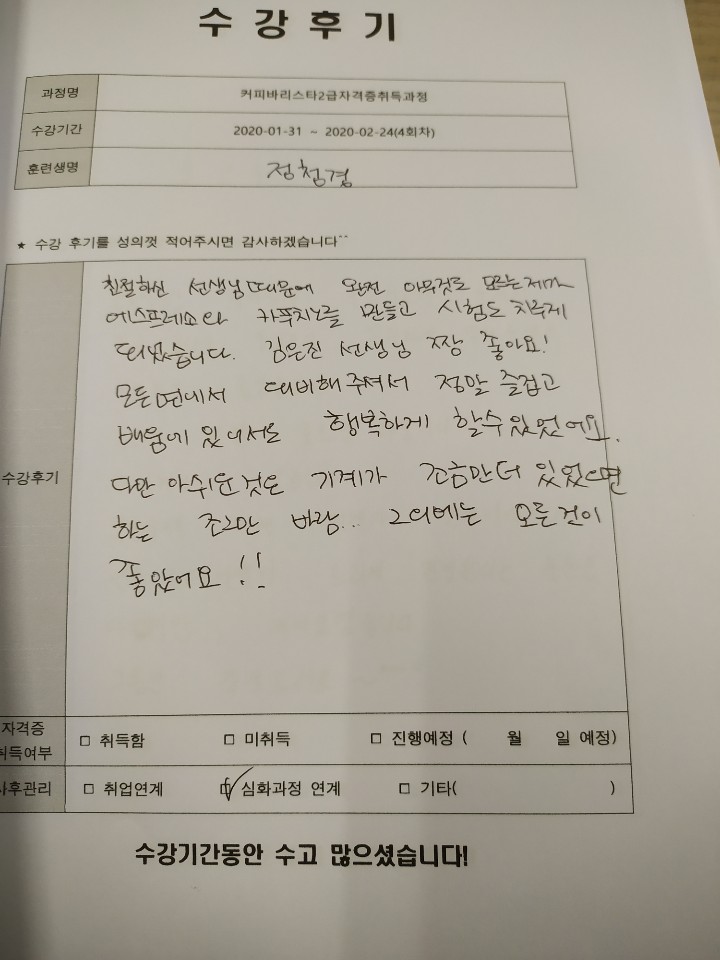 수강후기
과정명 커피바리스타2급자격증취득과정
수강기간 2020-01-31 ~ 2020-02-24(4회차)
훈련생명 정청경
★ 수강 후기를 성의껏 적어주시면 감사하겠습니다^^
친절하신 선생님 때문에 완전 아무것도 모르는 제가
에스프레소와 카푸치노를 만들고 시험도 치루게
되었습니다. 김은진 선생님 짱 좋아요!
모든면에서 대비해주셔서 정말 즐겁고
배움에 있어서도 행복하게 할수있었어요.
수강후기
다만 아쉬운것은 기계가 조금만더 있었으면
하는 조그만 바람... 그외에는 모든것이
좋았어요!!
자격증
취득여부 □ 취득함 □ 미취득 □ 진행예정 ( 월 일 예정)
사후관리 □ 취업연계 ☑ 심화과정 연계 □ 기타( )
수강기간동안 수고 많으셨습니다!